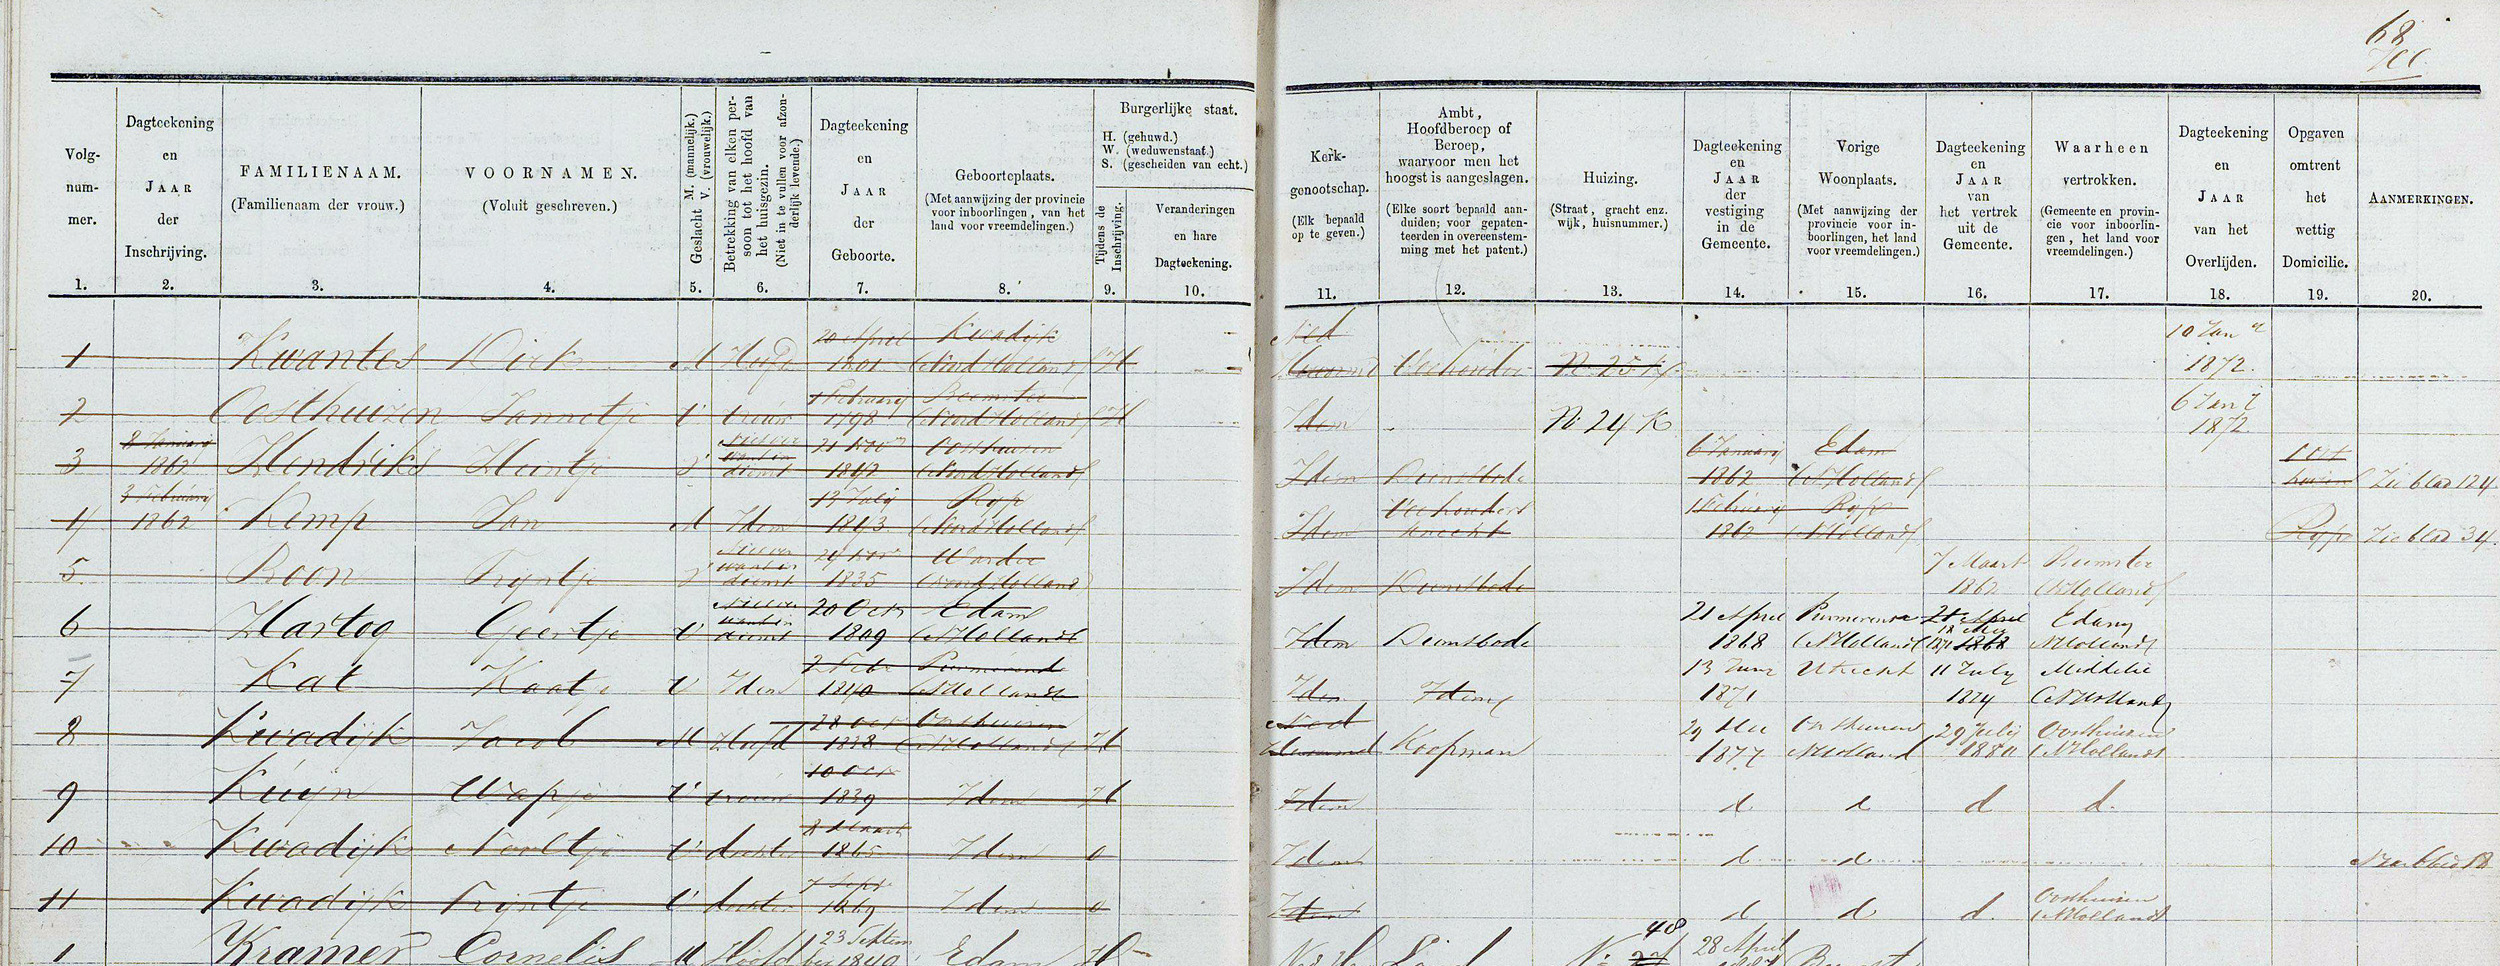 68
Volg-
num-
mer.
1.
Dagteekening
en
JAAR
der
Inschrijving.
2.
FAMILIENAAM.
(Familienaam der vrouw.)
3.
VOORNAMEN.
(Voluit geschreven.)
4.
Geslacht M. (mannelijk.)
V. (vrouwelijk.)
5.
Betrekking van elken per-
soon tot het hoofd van
het huisgezin.
(Niet in te vullen voor afzon-
derlijk levende.)
6.
Dagteekening
en
JAAR
der
Geboorte.
7.
Geboorteplaats.
(Met aanwijzing der provincie
voor inboorlingen, van het
land voor vreemdelingen.)
8.
Burgerlijke staat.
H. (gehuwd.)
W. (weduwenstaat.)
S. (gescheiden van echt.)
Tijdens de
Inschrijving.
9.
Veranderingen
en hare
Dagteekening.
10.
Kerk-
genootschap.
(Elk bepaald
op te geven.)
11.
Ambt,
Hoofdberoep of
Beroep,
waarvoor men het
hoogst is aangeslagen.
(Elke soort bepaald aan-
duiden; voor gepaten-
teerden in overeenstem-
ming met het patent.)
12.
Huizing.
(Straat, gracht enz.
wijk, huisnummer.)
13.
Dagteekening
en
JAAR
der
vestiging
in de
Gemeente.
14.
Vorige
Woonplaats.
(Met aanwijzing der
provincie voor in-
boorlingen, het land
voor vreemdelingen.)
15.
Dagteekening
en
JAAR
van
het vertrek
uit de
Gemeente.
16.
Waarheen
vertrokken.
(Gemeente en provin-
cie voor inboorlin-
gen, het land voor
vreemdelingen.)
17.
Dagteekening
en
JAAR
van het
Overlijden.
18.
Opgaven
omtrent
het
wettig
Domicilie.
19.
AANMERKINGEN.
20.
20 April Kwadijk Ned 10 Jan
1 Kwantes Dirk M Hoofd 1801 (Noord Holland) H Hervormd Veehouder N. 25 K 1872.
1 Februarij Beemster 6 Jan
2 Oosthuizen Jannetje V vrouw 1798 (Noord Holland) H Idem N. 24 K 1872
8 Januarij 21 Nov Oosthuizen 6 Januarij Edam Oost
3 1862 Hendriks Heintje V dienst 1842 (Noord Holland) Idem Dienstbode 1862 (NHolland) huizen Zie blad 124
3 Februarij 13 Julij Ryp Veehouders 1 Februarij Ryp
4 1862 Kemp Jan M Idem 1843 (Noord Holland) Idem knecht 1862 (NHolland) Ryp Zie blad 34
24 Nov Warder 7 Maart Beemster
5 Roon Trijntje V dienst 1835 (Noord Holland) Idem Dienstbode 1862 (NHolland)
20 Oct Edam 21 April Purmerende 21 April Edam
6 Hartog Geertje V dienst 1809 (NHolland) Idem Dienstbode 1868 (NHolland) 1868 NHolland
2 Febr Purmerende 13 Juny Utrecht 11 July Middelie
7 Kat Kaatje V Idem 1840 (NHolland) Idem Idem 1871 1874 (NHolland)
28 Oct Oosthuizen Ned 29 Dec Oosthuizen 29 July Oosthuizen
8 Kwadijk Jacob M Hoofd 1838 (NHolland) H Hervormd Koopman 1877 NHolland 1880 (NHolland)
10 Oct
9 Kuijn Wapje V vrouw 1839 Idem H Idem d d d d.
8 Maart
10 Kwadijk Neeltje V dochter 1865 Idem 0 Idem d d
7 Sept Oosthuizen
11 Kwadijk Trijntje V dochter 1869 Idem 0 Idem d d d. (NHolland)
23 Septem 48 28 April
1 Kramer Cornelis M Hoofd ber 1840 Edam H